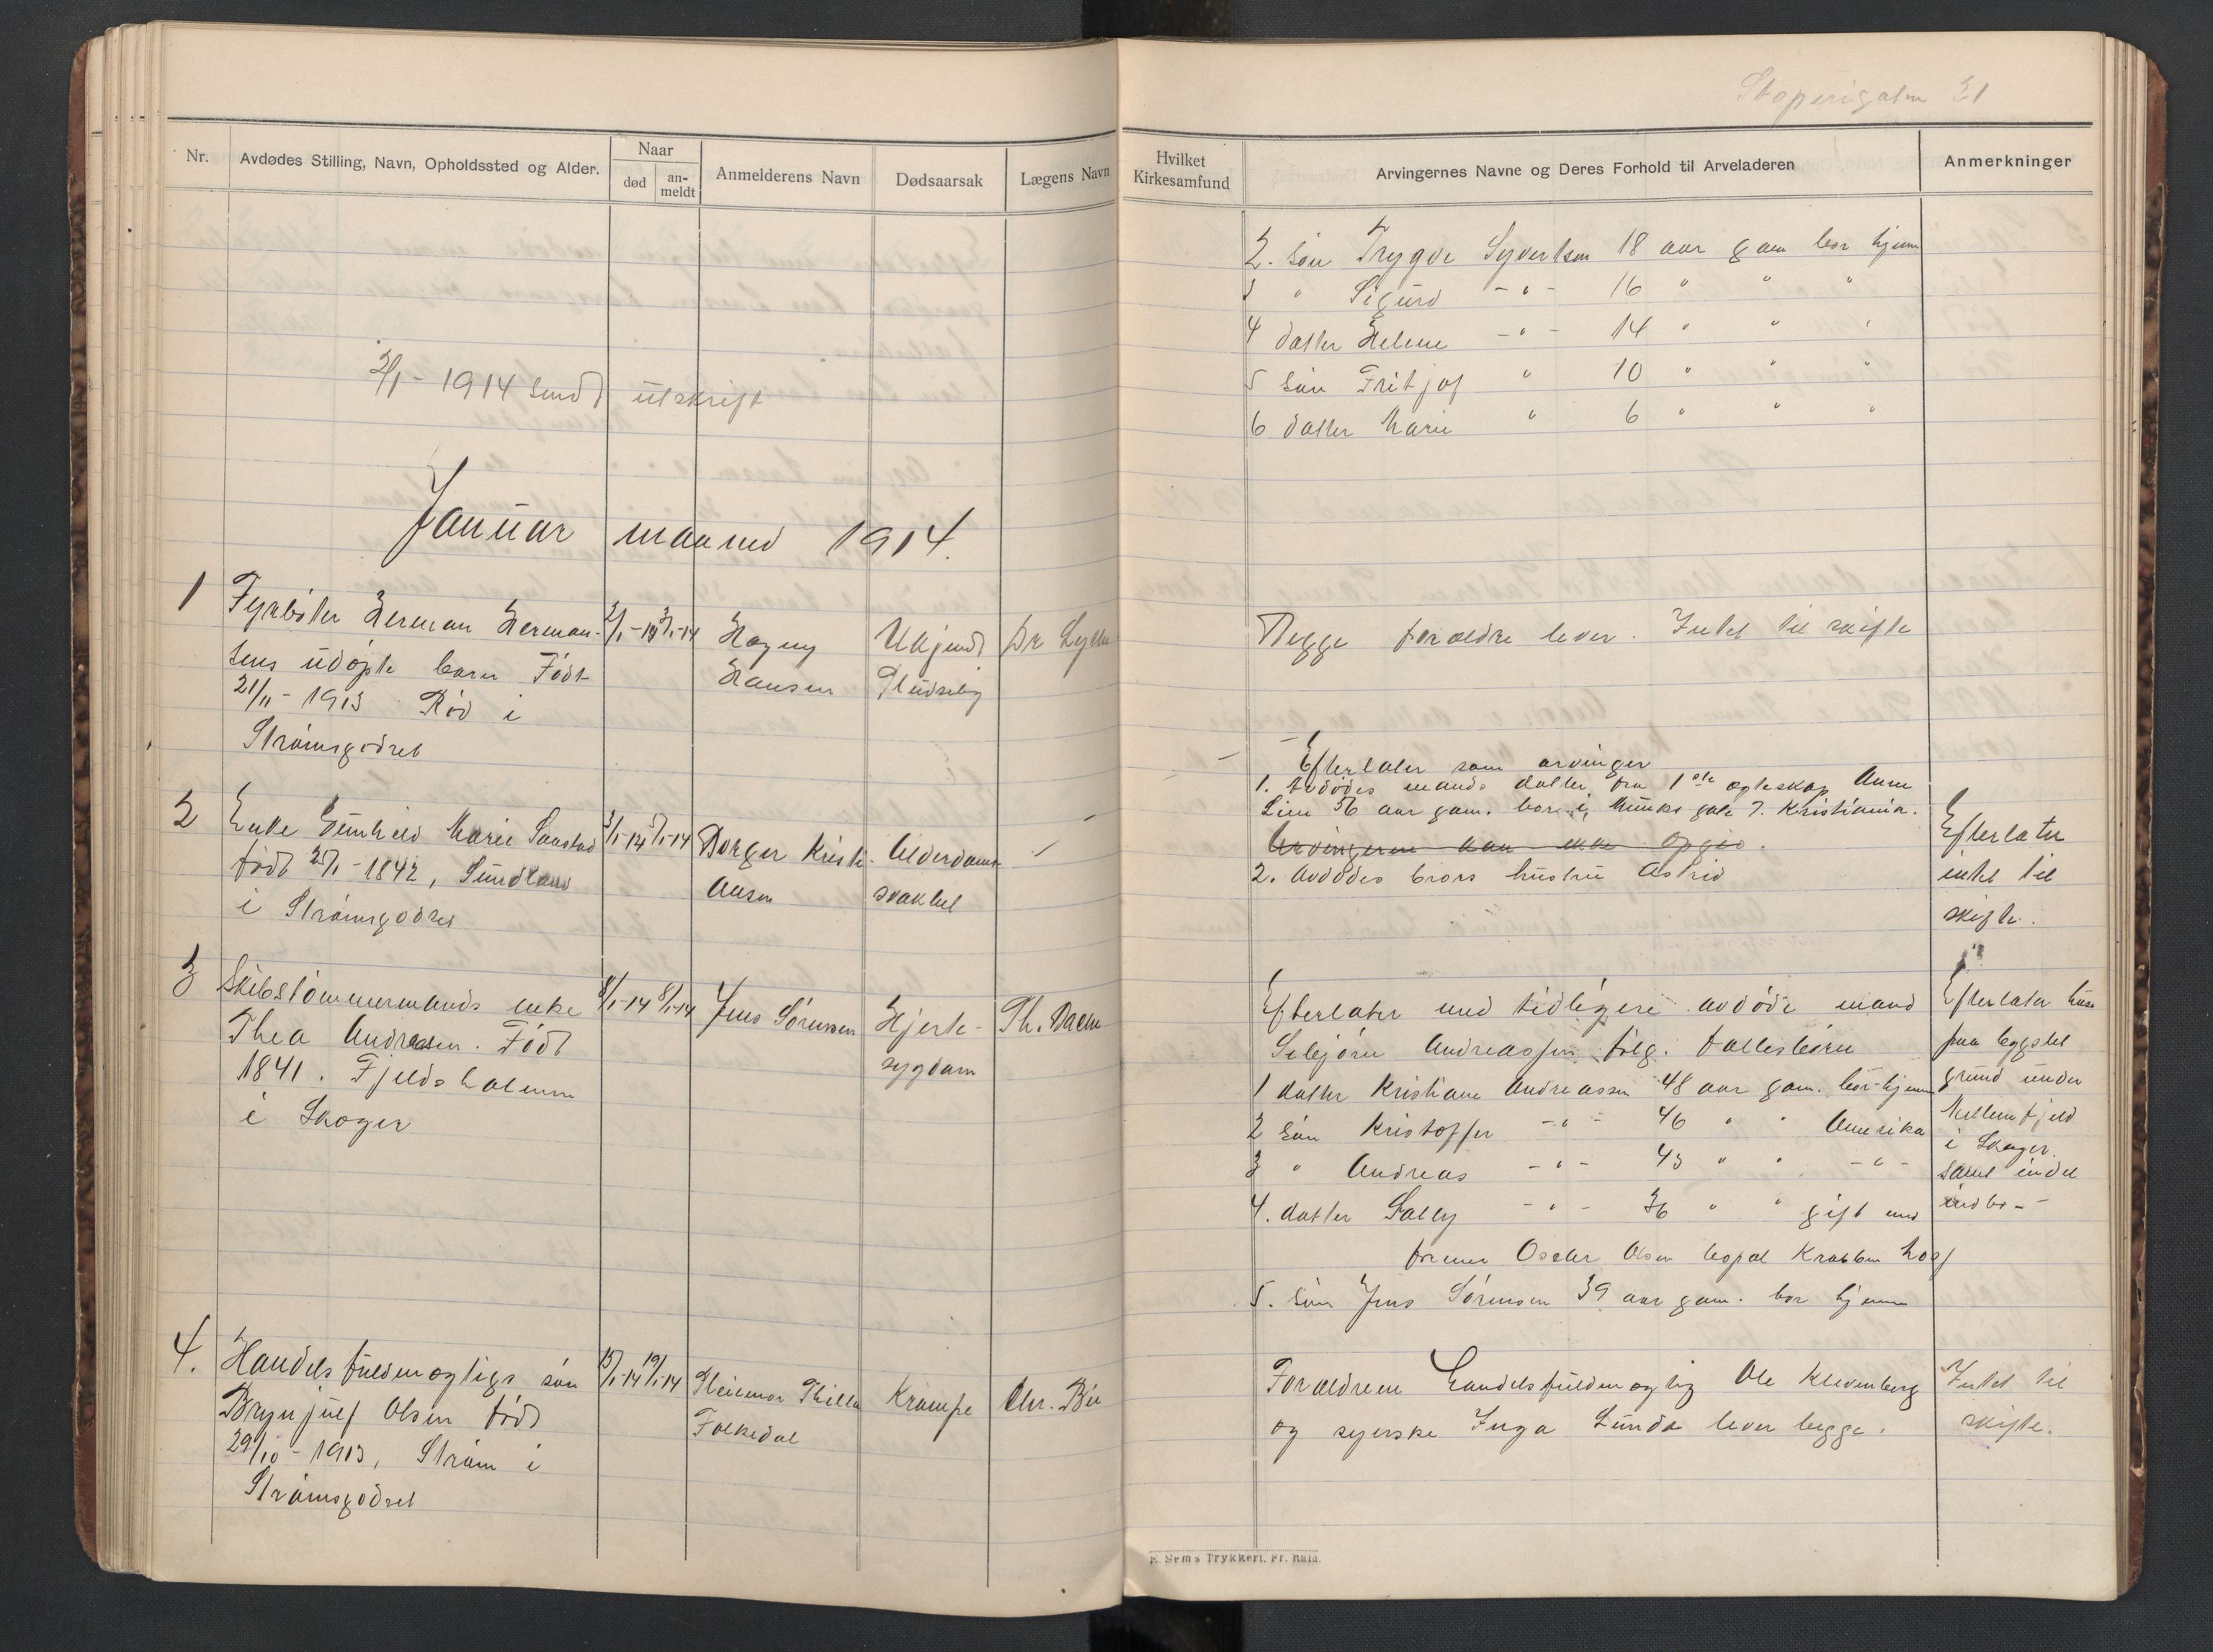 31
Nr.
Avdødes Stilling, Navn, Opholdssted og Alder.
Naar
død
an-
meldt
Anmelderens Navn
Dødsaarsak
Lægens Navn
Hvilket
Kirkesamfund
Arvingernes Navne og Deres Forhold til Arveladeren
Anmerkninger
2. søn Trygve Syvertsen 18 aar gam bor hjem
3 " Sigurd -"- 16 " " "
4 datter Helene -"- 14 " " "
5 søn Fritjof " 10 " " "
6 datter Marie " 6 " " "
2/1-1914 sendt utskrift
Januar maaned 1914.
1
Fyrbøter Herman Herman-
sens udøpte barn Født
21/11-1913 Rød i
Strømsgodset
2/1-14
3/1-14
Hagny
Hansen
Ukjendt
Pludselig
Dr
Begge foraeldre lever. Intet til skifte
2
Enke Gunhild Marie Sanstad
født 25/1-1842, Sundland
i Strømsgodset
3/1-14
5/1-14
Borger Kristi-
ansen
Alderdoms-
svakhet
Efterlater som arvinger
1. Avdødes mands datter fra 1ste egteskap Anne
Lien 56 aar gam. bor i Munks gate 7. Kristiania.
Arvingerne kan ikke opgis.
2. Avdødes brors hustru Astrid
Efterlater
intet til
skifte.
3
Skibstømmermands enke
Thea Andreasen. Født
1841. Fjeldsholmen
i Skoger
8/1-14
8/1-14
Jens Sørensen
Hjerte-
sygdom
Th. Bache
Efterlater med tidligere avdøde mand
Andreassen følg. fallesbørn
1 datter Kristiane Andreassen 48 aar gam. bor hjem
2 søn Kristoffer -"- 46 " " Amerika
3 " Andreas -"- 43 " " -"-
4. datter Sally -"- 36 " " gift med
former Oscar Olsen bopæl Krabben hos
5. søn Jens Sørensen 39 aar gam. bor hjemme
Efterlater hus
paa bygslet
grund under
Mellemfjeld
i Skoger.
samt endel
indbo-
4.
Handelsfuldmægtigs søn
Brynjulf Olsen født
29/10-1913, Strøm i
Strømsgodset
15/1-14
19/1-14
Falkedal
Krampe
Chr.
Foraeldrene Handelsfuldmægtig Ole Klevenberg
og syerske Inga Lunde lever begge.
Intet til
skifte.
E. Sems Trykkeri. Fr.hald.